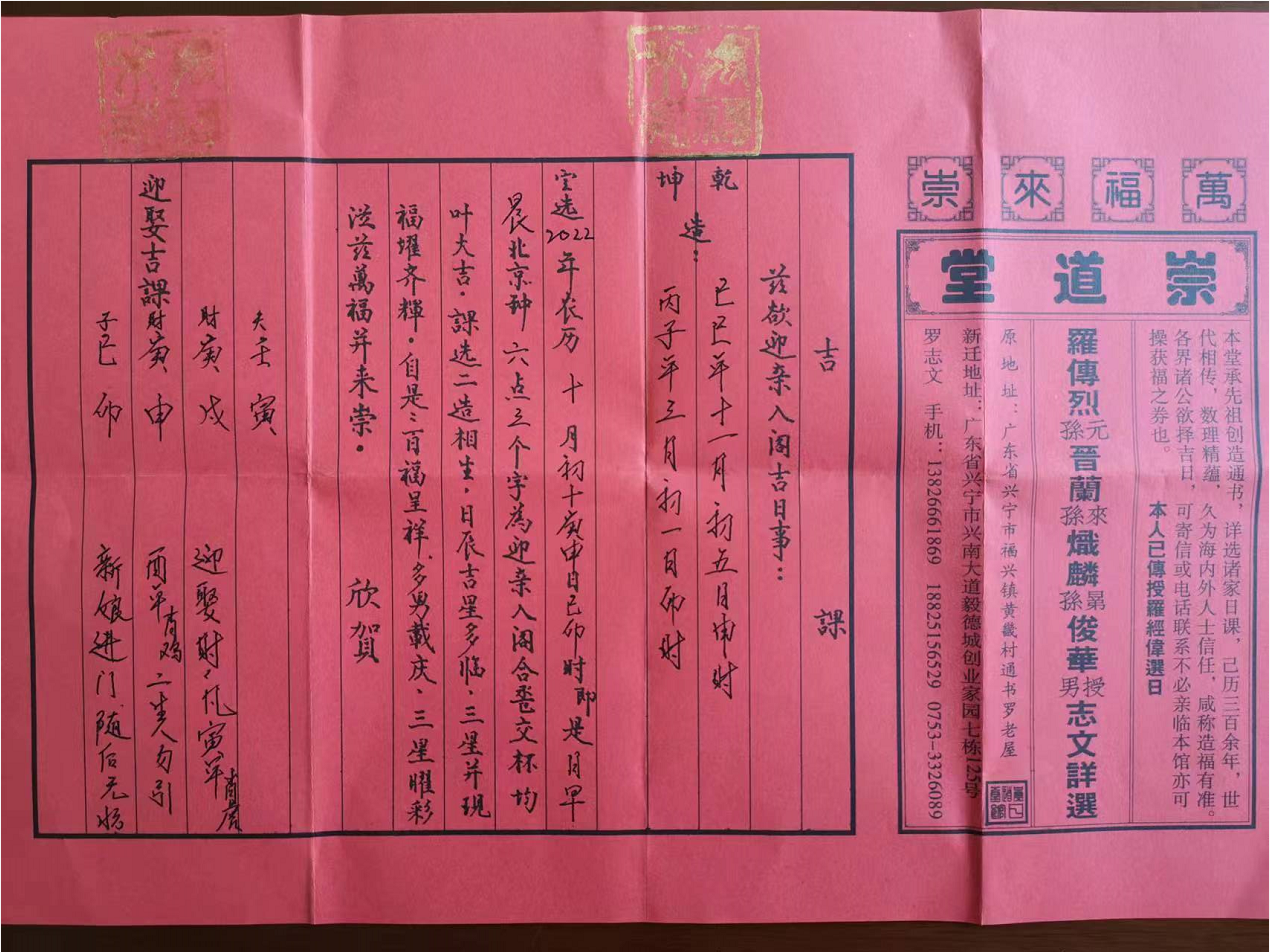 萬福來崇
崇道堂
本堂承先祖创造通书，详选诸家日课，己历三百余年，世
代相传，数理精蕴，久为海内外人士信任，咸称造福有准。
各界诸公欲择吉日，可寄信或电话联系不必亲临本馆亦可
操获福之券也。
本人已傳授羅經偉選日
羅傳烈元孫晉蘭來孫熾麟晜孫俊華授男志文詳選
原地址：广东省兴宁市福兴镇黄畿村通书罗老屋
新迁地址：广东省兴宁市兴南大道毅德城创业家园七栋125号
罗志文 手机：13826661869 18825156529 0753-3326089
吉課
茲欲迎亲入阁吉日事：
乾造：己巳年十一月初五日申时
坤 丙子年三月初一日卯时
定选2022年农历十月初十庚申日己卯时即是月早
晨北京钟六点三个字為迎亲入阁合卺交杯均
叶大吉．課选二造相生，日辰吉星多临、三星并現
福壜齐輝．自是：百福呈祥、多男載庆、三星曜彩
从茲萬福并来崇．
欣賀
夫壬寅
財寅戌 迎娶时：凡寅年肖虎
迎娶吉課
財寅申 酉年肖鸡二生人勿引
子巳卯 新娘进门随后无妨